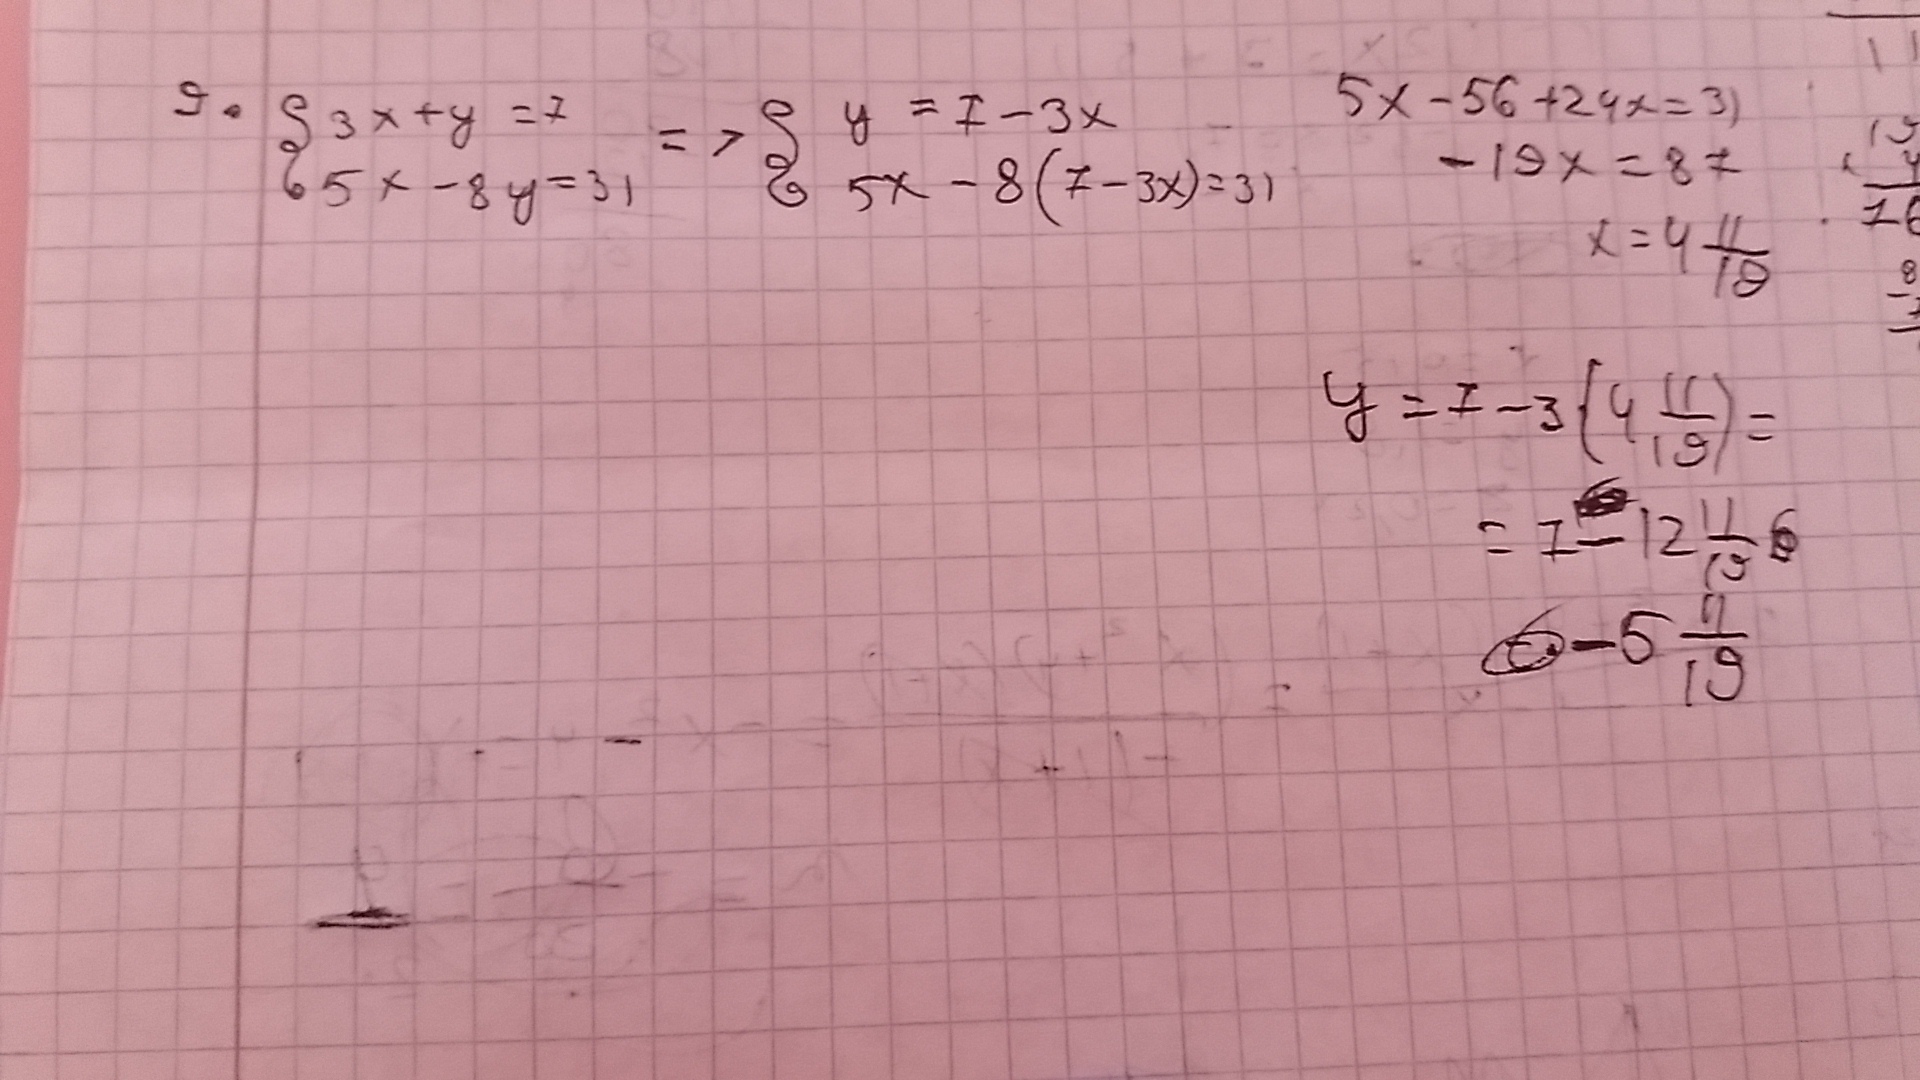 9. { 3x+y=7
5x-8y=31
=> { y=7-3x
5x-8(7-3x)=31
5x-56+24x=31
-19x=87
x=4 11/19
y=7-3(4 11/19)=
=7-12 11/19
-5 11/19